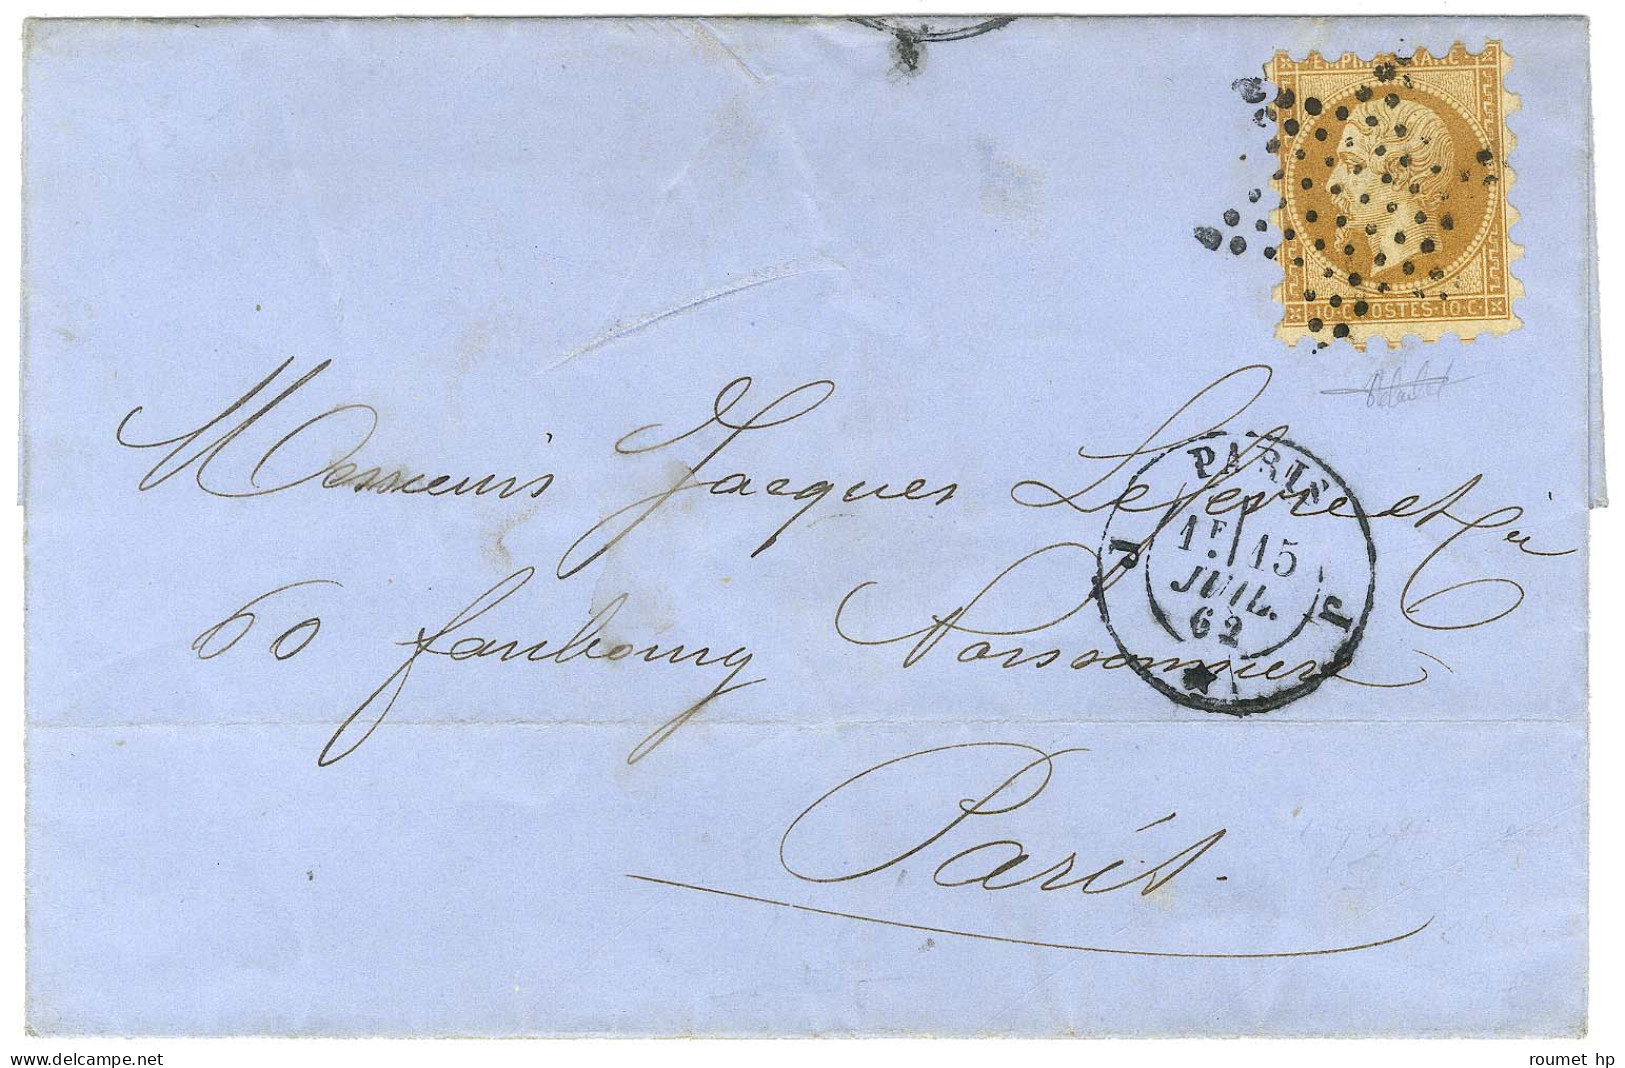 EMPIRE FRANC
10·C·POSTES·10·C·
Messieurs Jacques Lefevre et Cie
60 faubourg Poissonniere
Paris.
PARIS
1E 15
JUIL.
62
J J
www.delcampe.net
roumet hp